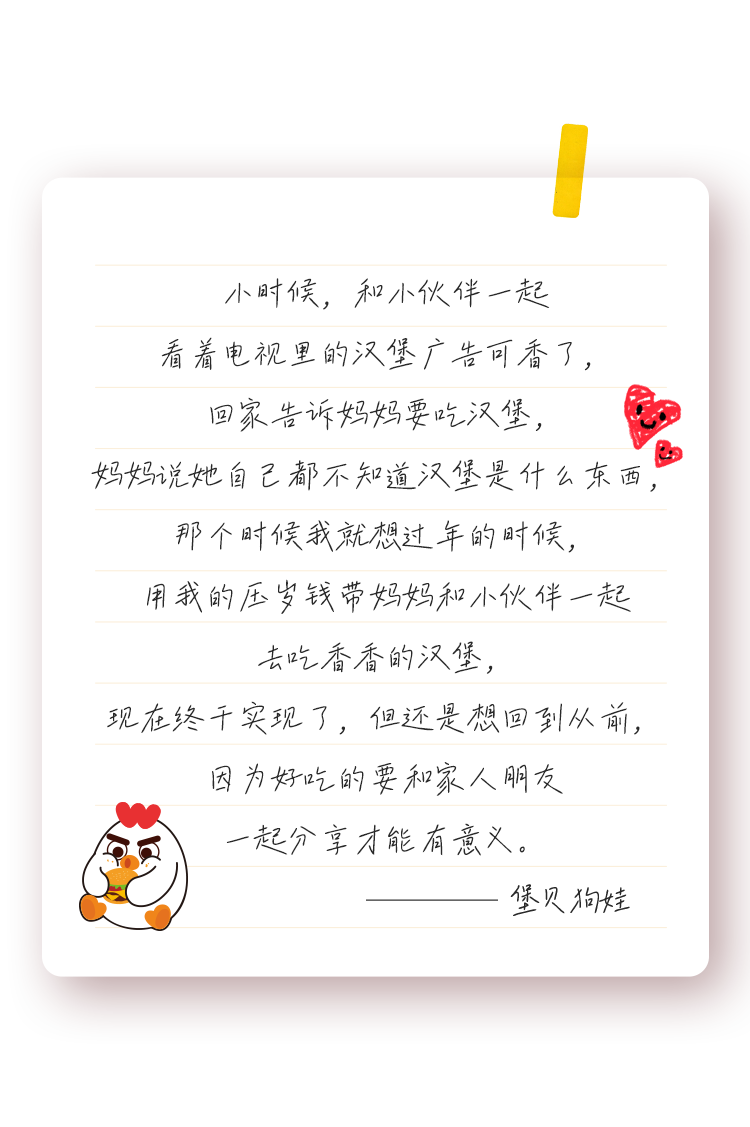 小时候，和小伙伴一起
看着电视里的汉堡广告可香了，
回家告诉妈妈要吃汉堡，
妈妈说她自己都不知道汉堡是什么东西，
那个时候我就想过年的时候，
用我的压岁钱带妈妈和小伙伴一起
去吃香香的汉堡，
现在终于实现了，但还是想回到从前，
因为好吃的要和家人朋友
一起分享才能有意义。
———— 堡贝狗娃